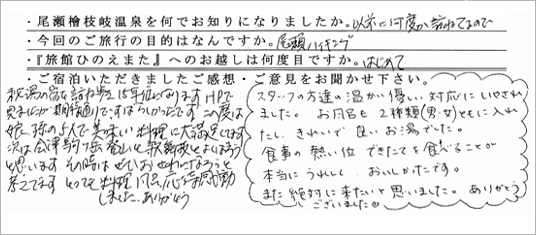 ・尾瀬檜枝岐温泉を何でお知りになりましたか。以前に何度か訪れてるので
・今回のご旅行の目的はなんですか。尾瀬ハイキング
・『旅館ひのえまた』へのお越しは何度目ですか。はじめて
・ご宿泊いただきましたご感想・ご意見をお聞かせ下さい。
秘湯の宿を訪ね歩き15年位になります HPで
見ましたが期待通りですばらしかったです この度は
娘、孫の5人で美味しい料理に大満足でです
次は会津駒ヶ岳登山と歌舞伎とよばろう
と思います その時はぜひおせわになろうと
考えてます とっても料理、風呂、応待感動
しました。ありがとう
スタッフの方達の温かい優しい対応にいやされ
ました。お風呂も2種類(男・女)ともに入れ
たし、きれいで良いお湯でした。
食事の熱い位できたてを食べることが
本当にうれしく、おいしかったです。
また絶対に来たいと思いました。ありがとう
ございました